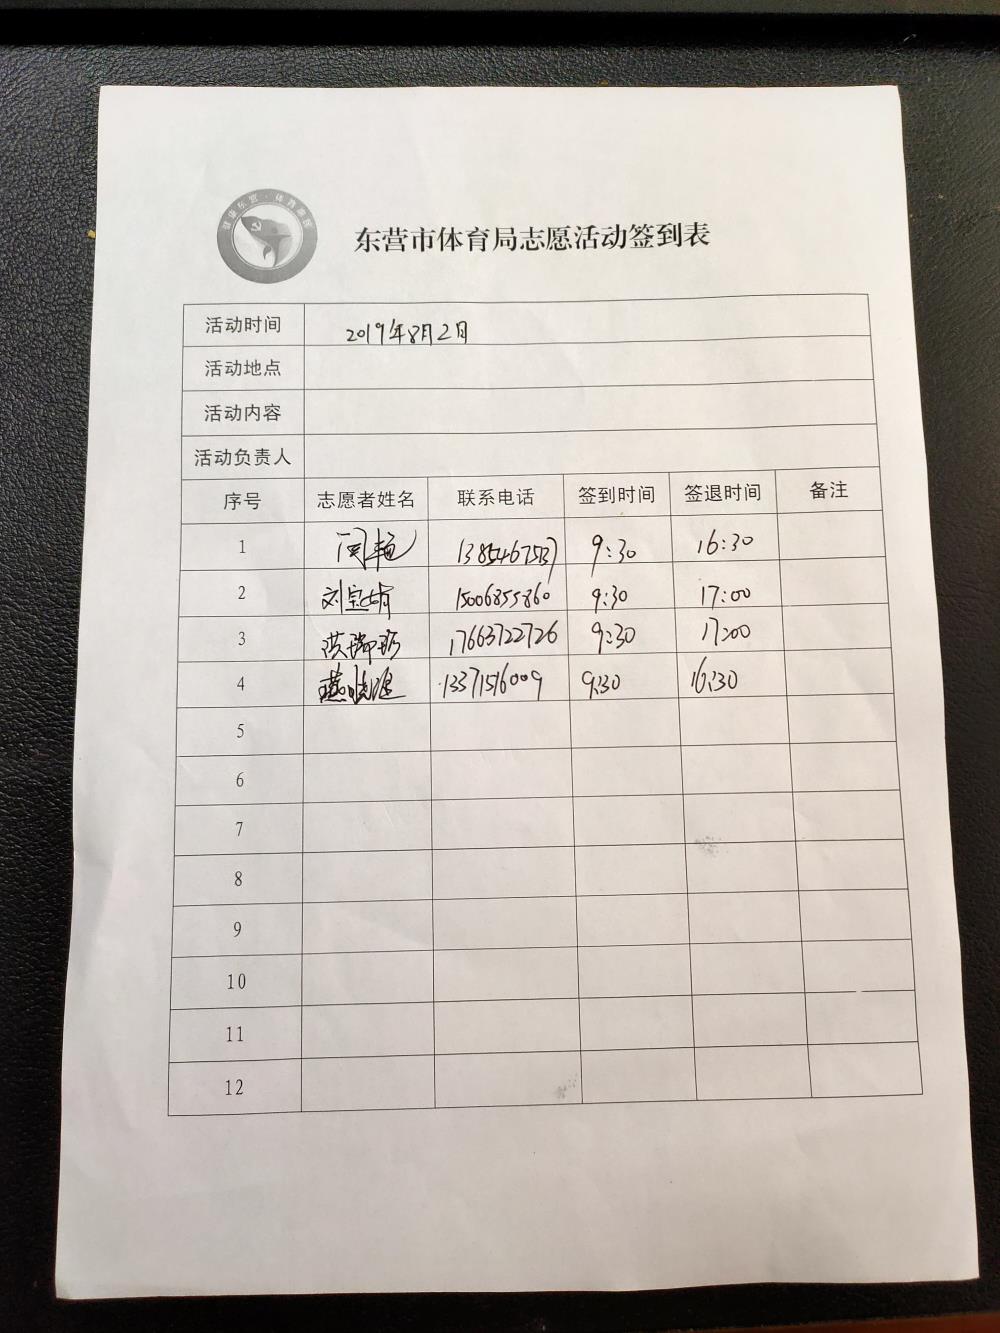 健康东营·体育惠民
东营市体育局志愿活动签到表
活动时间 2019年8月2日
活动地点
活动内容
活动负责人
序号 志愿者姓名 联系电话 签到时间 签退时间 备注
1 闫艳 13854675137 9:30 16:30
2 刘宝娟 15006855860 9:30 17:00
3 17663722726 9:30 17:00
4 13371516009 9:30 16:30
5
6
7
8
9
10
11
12